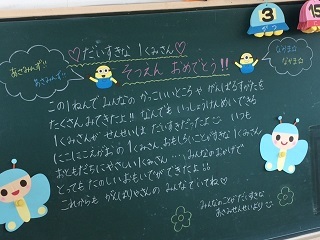 ♡だいすきな 1くみさん♡
そつえん おめでとう!!
あさみんず!!
あさみんず!!
なかま☆
なかま☆
3
がつ
15
この1ねんで みんなの かっこいいところや がんばるすがたを
たくさん みてきたよ!! なんでも いっしょうけんめいできる
1くみさんが せんせいは だいすきだったよ いつも
にこにこえがおの 1くみさん、おもしろいことがすきな1くみさん
おともだちにやさしい1くみさん…、みんなのおかげで
とっても たのしいおもいでができたよ
これからも がんばりやさんの みんなでいてね♡
みんなのことが だいすきな
あさみせんせいより